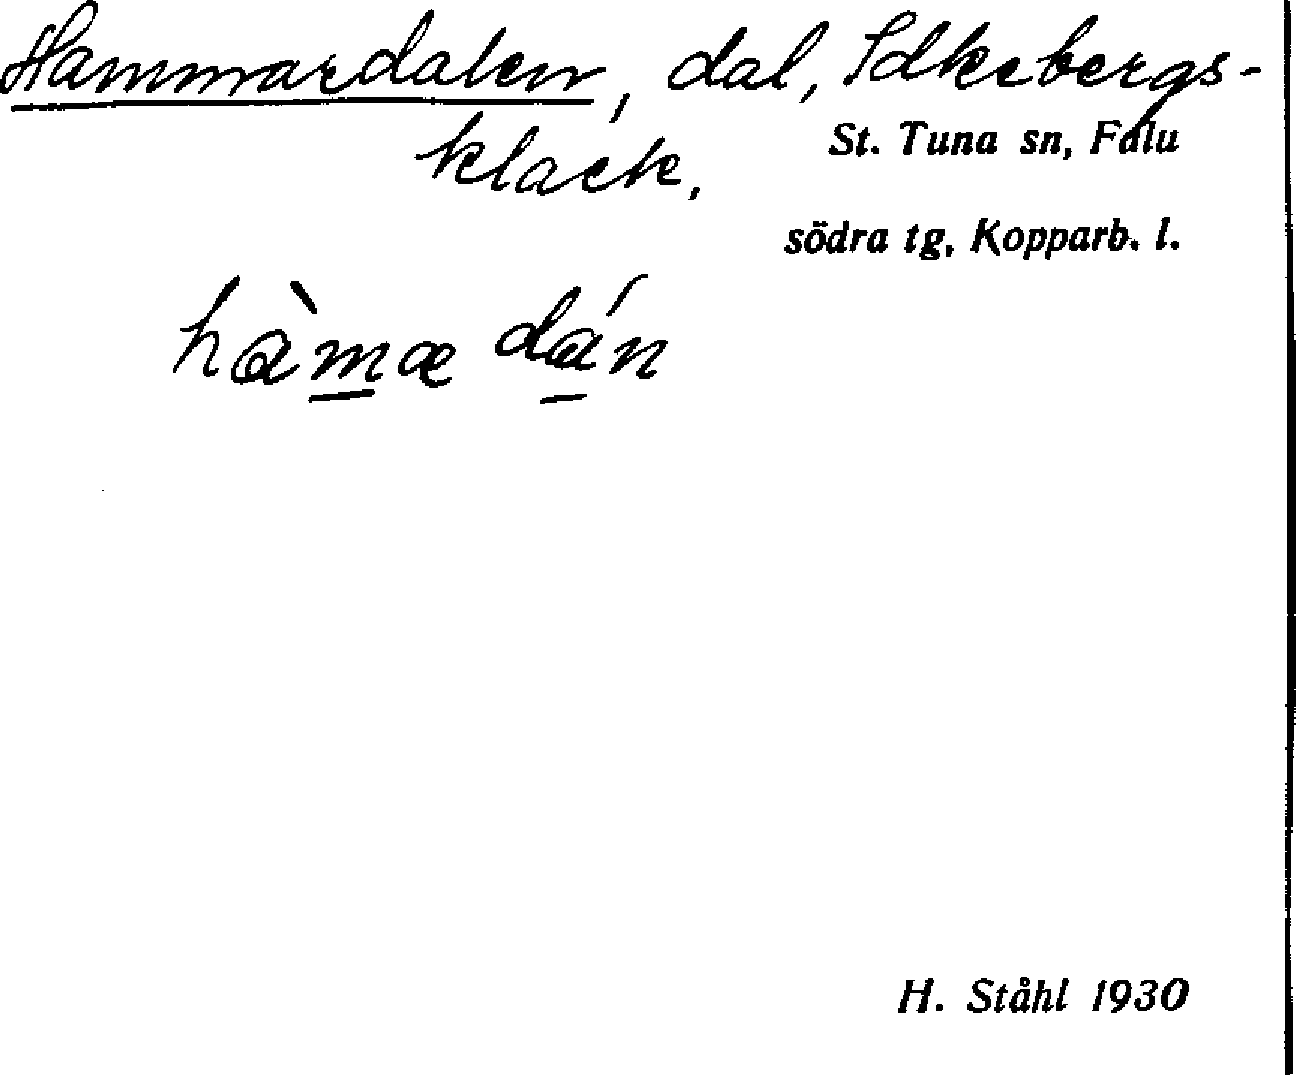 Hammardalen, dal, Idkebergs-
klack,
St. Tuna sn, Falu
södra tg, Kopparb. l.
hàmæ dán
H. Ståhl 1930